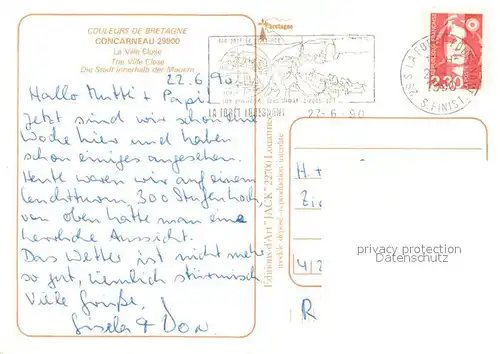 COULEURS DE BRETAGNE
CONCARNEAU 29900
La Ville Close
The Ville Close
Die Stadt innerhalb der Mauern
bretagne
22.6.90
Hallo Mutti + Papi!
Jetzt sind wir schon eine
Woche hier und haben
schon einiges angesehen.
Heute waren wir auf einem
Leuchtturm, 300 Stufen hoch,
von oben hatte man eine
herrliche Aussicht.
Das Wetter ist nicht mehr
so gut, ziemlich stürmisch
Viele Grüße,
Gisela + Don.
LA FORET FOUESNANT
22-6-90
Editions d'Art "JACK" 22700 Louannec
modèle déposé - reproduction interdite
2,30
S. FINIST.
H. +
Zi
412
R
privacy protection
Datenschutz